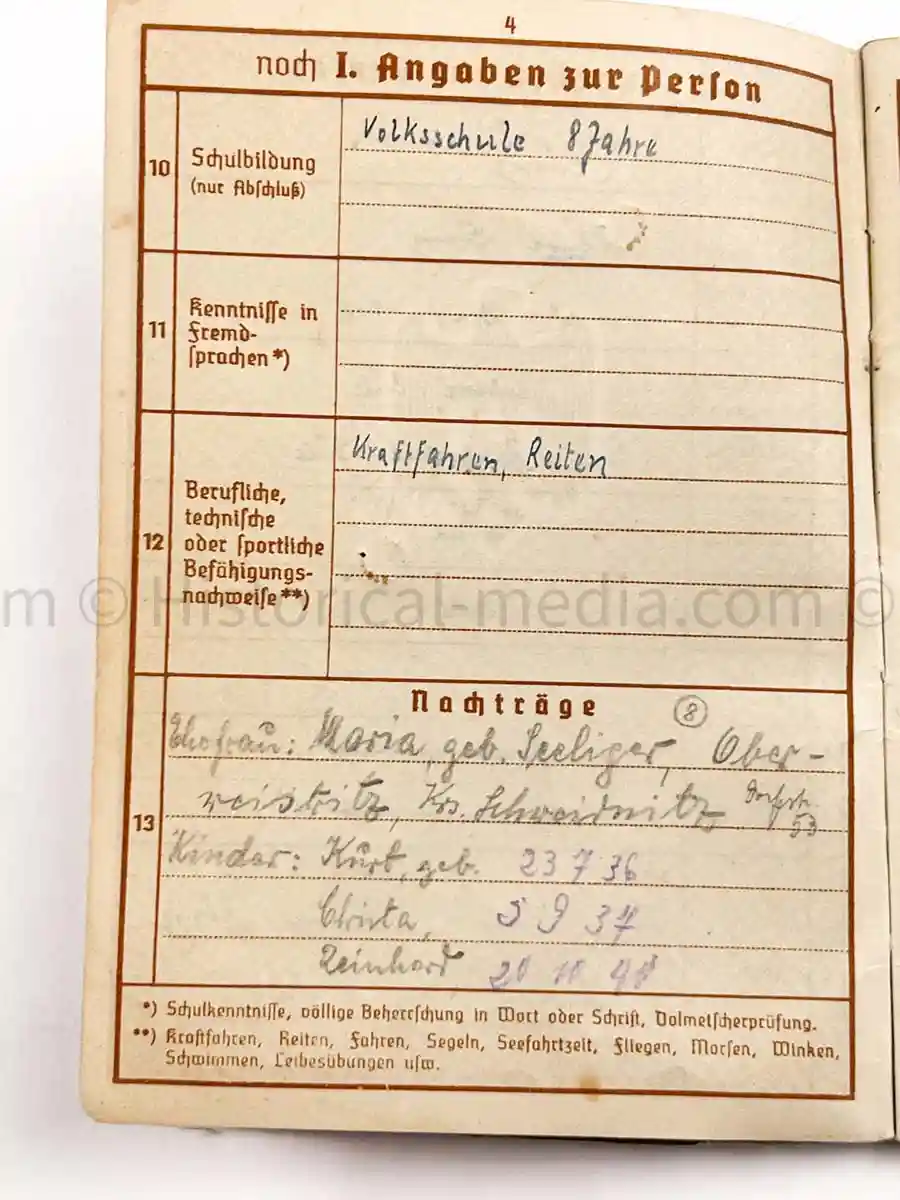 4
noch I. Angaben zur Person
10
Schulbildung
(nur Abschluß)
Volksschule 8 Jahre
11
Kenntnisse in
Fremd-
sprachen *)
12
Berufliche,
technische
oder sportliche
Befähigungs-
nachweise **)
Kraftfahren, Reiten
m © Historical-media.com ©
13
Nachträge
8
Ehefrau: Maria, geb. Seeliger, Ober-
weistritz, Krs. Schweidnitz Dorfstr.
53
Kinder: Kurt, geb. 23 7 36
Christa, 5 9 37
Reinhard
*) Schulkenntnisse, völlige Beherrschung in Wort oder Schrift, Dolmetscherprüfung.
**) Kraftfahren, Reiten, Fahren, Segeln, Seefahrtzeit, Fliegen, Morsen, Winken,
Schwimmen, Leibesübungen usw.